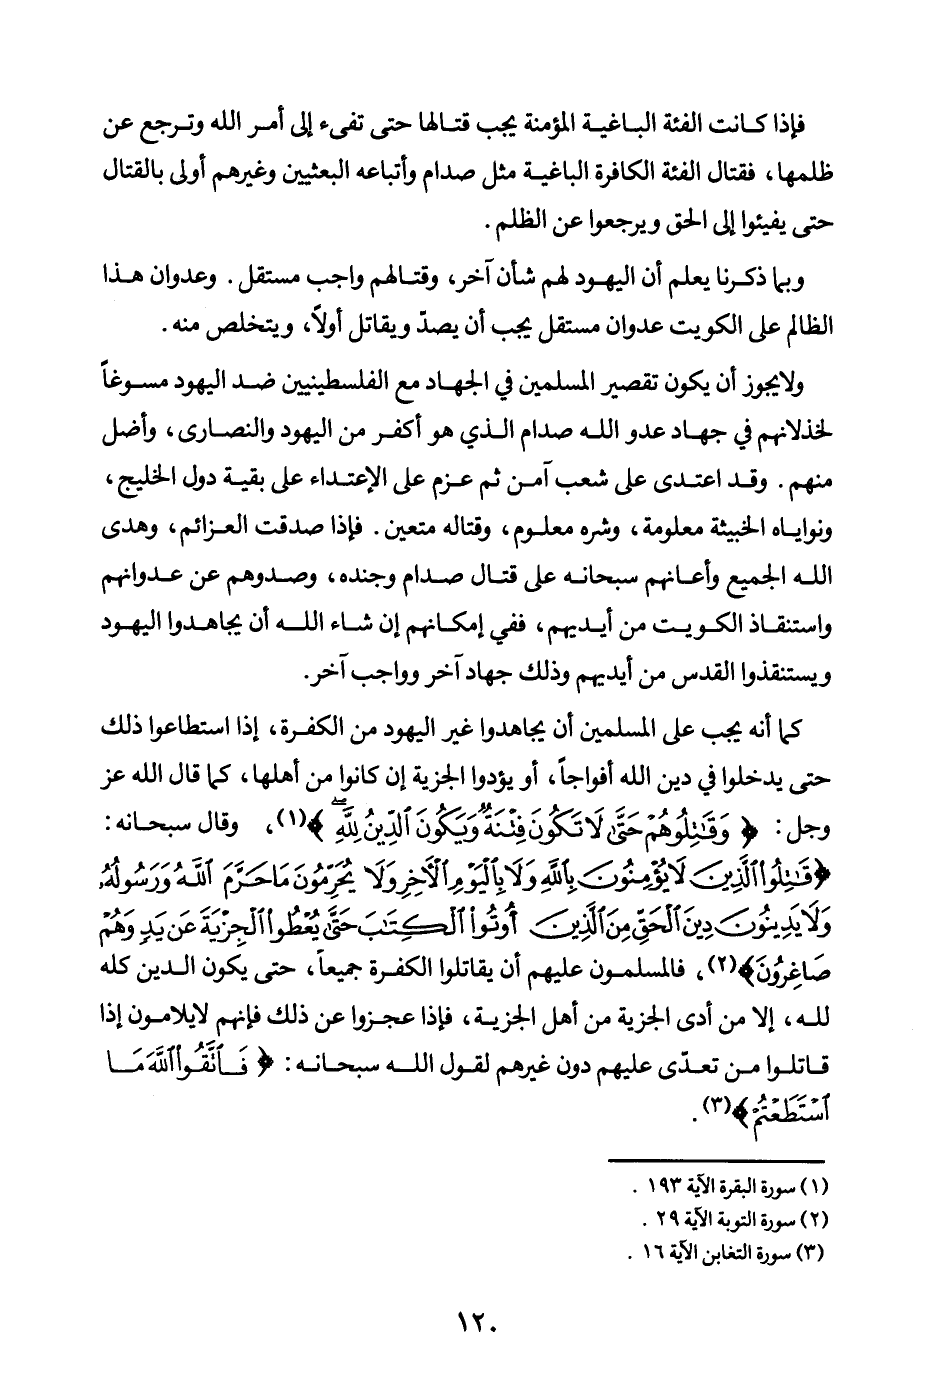 فإذا كانت الفئة الباغية المؤمنة يجب قتالها حتى تفيء إلى أمر الله وترجع عن
ظلمها، فقتال الفئة الكافرة الباغية مثل صدام وأتباعه البعثيين وغيرهم أولى بالقتال
حتى يفيئوا إلى الحق ويرجعوا عن الظلم.
وبما ذكرنا يعلم أن اليهود لهم شأن آخر، وقتالهم واجب مستقل. وعدوان هذا
الظالم على الكويت عدوان مستقل يجب أن يصدّ ويقاتل أولاً، ويتخلص منه.
ولايجوز أن يكون تقصير المسلمين في الجهاد مع الفلسطينيين ضد اليهود مسوغاً
لخذلانهم في جهاد عدو الله صدام الذي هو أكفر من اليهود والنصارى، وأضل
منهم. وقد اعتدى على شعب آمن ثم عزم على الإعتداء على بقية دول الخليج،
ونواياه الخبيثة معلومة، وشره معلوم، وقتاله متعين. فإذا صدقت العزائم، وهدى
الله الجميع وأعانهم سبحانه على قتال صدام وجنده، وصدوهم عن عدوانهم
واستنقاذ الكويت من أيديهم، ففي إمكانهم إن شاء الله أن يجاهدوا اليهود
ويستنقذوا القدس من أيديهم وذلك جهاد آخر وواجب آخر.
كما أنه يجب على المسلمين أن يجاهدوا غير اليهود من الكفرة، إذا استطاعوا ذلك
حتى يدخلوا في دين الله أفواجاً، أو يؤدوا الجزية إن كانوا من أهلها، كما قال الله عز
وجل: ﴿ وَقَٰتِلُوهُمْ حَتَّىٰ لَا تَكُونَ فِتْنَةٌ وَيَكُونَ ٱلدِّينُ لِلَّهِ ۖ ﴾(١)، وقال سبحانه:
﴿قَٰتِلُوا۟ ٱلَّذِينَ لَا يُؤْمِنُونَ بِٱللَّهِ وَلَا بِٱلْيَوْمِ ٱلْآخِرِ وَلَا يُحَرِّمُونَ مَا حَرَّمَ ٱللَّهُ وَرَسُولُهُۥ
وَلَا يَدِينُونَ دِينَ ٱلْحَقِّ مِنَ ٱلَّذِينَ أُوتُوا۟ ٱلْكِتَٰبَ حَتَّىٰ يُعْطُوا۟ ٱلْجِزْيَةَ عَن يَدٍ وَهُمْ
صَٰغِرُونَ﴾(٢)، فالمسلمون عليهم أن يقاتلوا الكفرة جميعاً، حتى يكون الدين كله
لله، إلا من أدى الجزية من أهل الجزية، فإذا عجزوا عن ذلك فإنهم لايلامون إذا
قاتلوا من تعدّى عليهم دون غيرهم لقول الله سبحانه: ﴿ فَٱتَّقُوا۟ ٱللَّهَ مَا
ٱسْتَطَعْتُمْ﴾(٣).
(١) سورة البقرة الآية ١٩٣ .
(٢) سورة التوبة الآية ٢٩ .
(٣) سورة التغابن الآية ١٦ .
١٢٠